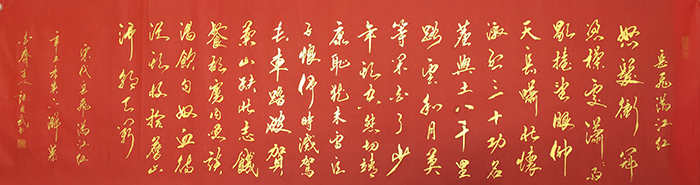 岳飛滿江紅
怒髮衝冠
憑欄處瀟瀟雨
歇擡望眼仰
天長嘯壯懷
激烈三十功名
塵與土八千里
路雲和月莫
等閑白了少
年頭空悲切靖
康恥猶未雪臣
子恨何時滅駕
長車踏破賀
蘭山缺壯志饑
餐胡虜肉笑談
渴飲匈奴血待
從頭收拾舊山
河朝天闕
宋代岳飛滿江紅